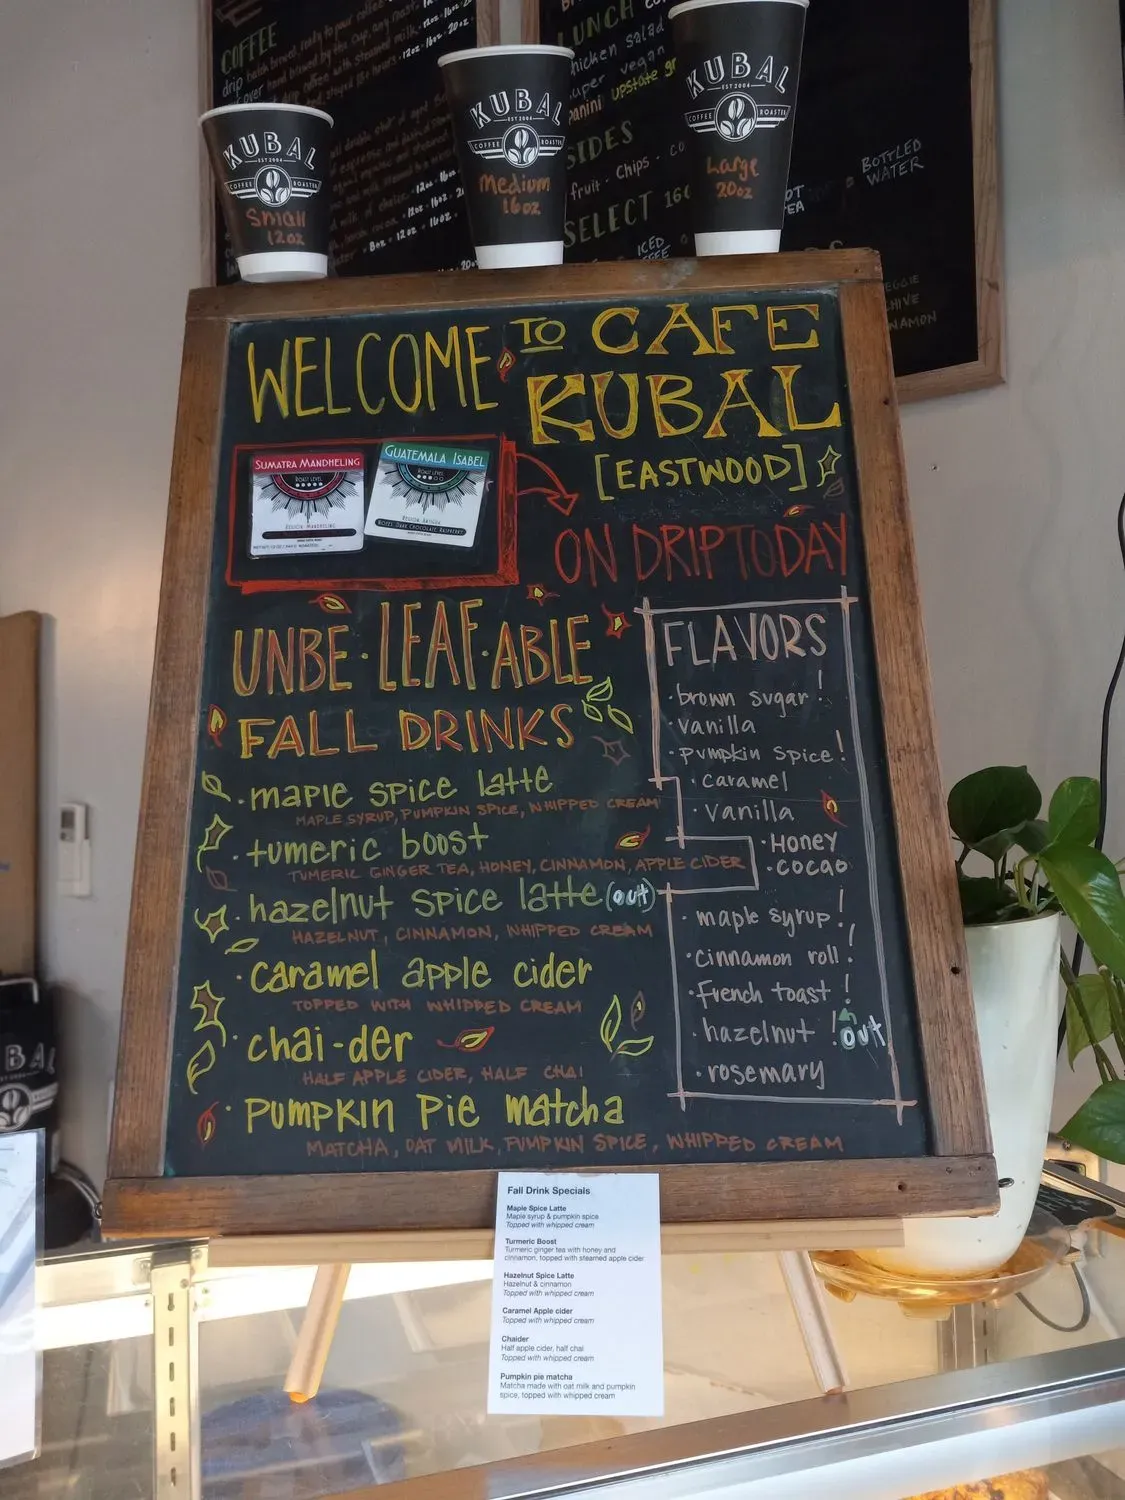 COFFEE
drip
LUNCH
chicken salad
super vegan
panini upstate
SIDES
fruit · Chips ·
SELECT 16
ICED
BOTTLED
WATER
KUBAL
EST 2004
COFFEE ROASTER
Small
12oz
KUBAL
EST 2004
COFFEE ROASTER
Medium
16oz
KUBAL
EST 2004
COFFEE ROASTER
Large
20oz
WELCOME TO CAFE
KUBAL
[EASTWOOD]
SUMATRA MANDHELING
ROAST LEVEL
REGION: MANDHELING
GUATEMALA ISABEL
ROAST LEVEL
REGION: ANTIGUA
NOTES: DARK CHOCOLATE, RASPBERRY
ON DRIP TODAY
UNBE·LEAF·ABLE
FALL DRINKS
· maple spice latte
MAPLE SYRUP, PUMPKIN SPICE, WHIPPED CREAM
· tumeric boost
TUMERIC GINGER TEA, HONEY, CINNAMON, APPLE CIDER
· hazelnut spice latte (out)
HAZELNUT, CINNAMON, WHIPPED CREAM
· caramel apple cider
TOPPED WITH WHIPPED CREAM
· chai-der
HALF APPLE CIDER, HALF CHAI
· PUMPKIN PIE matcha
MATCHA, OAT MILK, PUMPKIN SPICE, WHIPPED CREAM
FLAVORS
· brown sugar!
· vanilla
· pumpkin spice!
· caramel
· vanilla
· Honey
· cocao
· maple syrup!
· cinnamon roll!
· french toast!
· hazelnut! out
· rosemary
Fall Drink Specials
Maple Spice Latte
Maple syrup & pumpkin spice
Topped with whipped cream
Turmeric Boost
Turmeric ginger tea with honey and
cinnamon, topped with steamed apple cider
Hazelnut Spice Latte
Hazelnut & cinnamon
Topped with whipped cream
Caramel Apple cider
Topped with whipped cream
Chaider
Half apple cider, half chai
Topped with whipped cream
Pumpkin pie matcha
Matcha made with oat milk and pumpkin
spice, topped with whipped cream